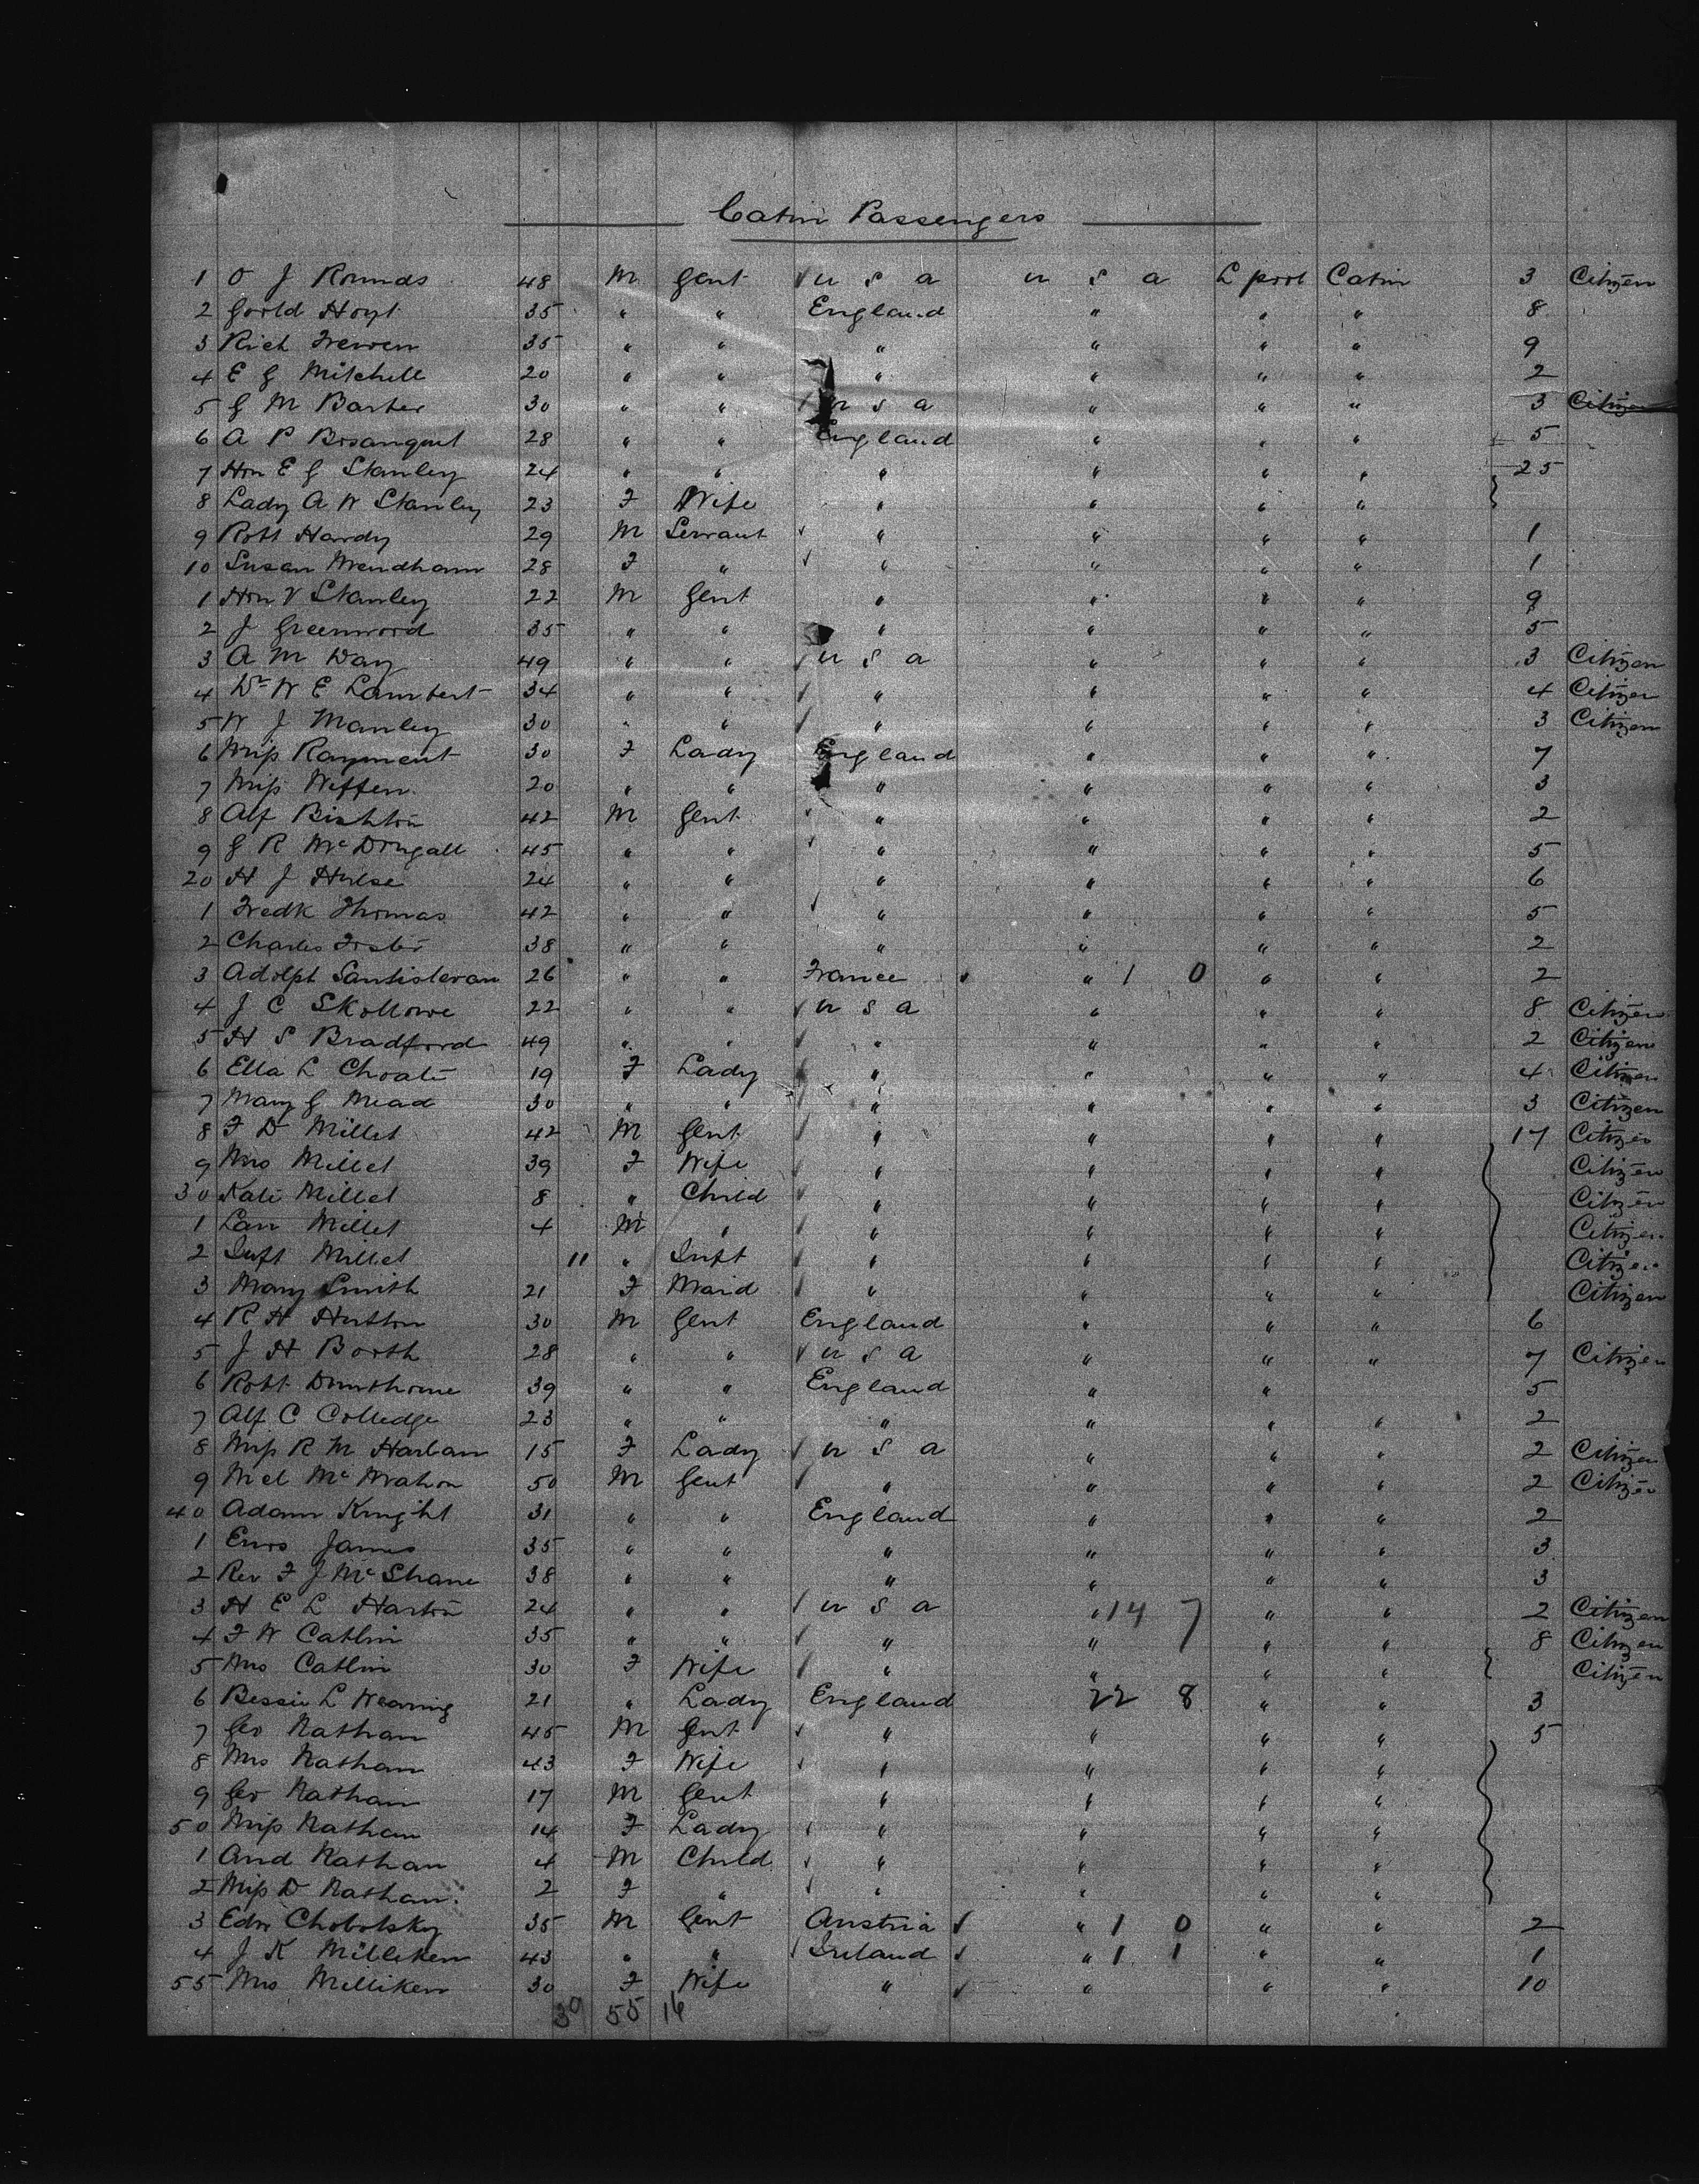 Cabin Passengers
1 O J Rounds 48 M Gent U S A U S A L pool Cabin 3 Citizen
2 Goold Hoyt 35 " " England " " " 8
3 Rich Frewen 35 " " " " " " 9
4 E G Mitchell 20 " " " " " " 2
5 G M Barber 30 " " U S A " " " 3 Citizen
6 A P Bosanquet 28 " " England " " " 5
7 Hon E G Stanley 24 " " " " " " 25
8 Lady A W Stanley 23 F Wife " " " "
9 Robt Hardy 29 M Servant " " " " 1
10 Susan Mendham 28 F " " " " " 1
1 Hon V Stanley 22 M Gent " " " " 9
2 J Greenwood 35 " " " " " " 5
3 A M Day 49 " " U S A " " " 3 Citizen
4 Dr W E Lambert 34 " " " " " " 4 Citizen
5 W J Manley 30 " " " " " " 3 Citizen
6 Miss Rayment 30 F Lady England " " " 7
7 Miss Wiffen 20 " " " " " " 3
8 Alf Bishton 42 M Gent " " " " 2
9 G R McDougall 45 " " " " " " 5
20 H J Hulse 24 " " " " " " 6
1 Fredk Thomas 42 " " " " " " 5
2 Charles Foster 38 " " " " " " 2
3 Adolph Santisteran 26 " " France " 1 0 " " 2
4 J C Skollowe 22 " " U S A " " " 8 Citizen
5 H S Bradford 49 " " " " " " 2 Citizen
6 Ella L Choate 19 F Lady " " " " 4 Citizen
7 Mary G Mead 30 " " " " " " 3 Citizen
8 F D Millet 42 M Gent " " " " 17 Citizen
9 Mrs Millet 39 F Wife " " " " Citizen
30 Kate Millet 8 " Child " " " " Citizen
1 Lau Millet 4 M " " " " " Citizen
2 Inft Millet 11 " Inft " " " " Citizen
3 Mary Smith 21 F Maid " " " " Citizen
4 R H Hutton 30 M Gent England " " " 6
5 J H Booth 28 " " U S A " " " 7 Citizen
6 Robt Dunthorne 39 " " England " " 5
7 Alf C Colledge 23 " " " " " " 2
8 Miss R M Harlan 15 F Lady U S A " " " 2 Citizen
9 Mel McMahon 50 M Gent " " " " 2 Citizen
40 Adam Knight 31 " " England " " " 2
1 Enos James 35 " " " " " " 3
2 Rev F J McShane 38 " " " " " " 3
3 H E L Harton 24 " " U S A " 14 7 " " 2 Citizen
4 F W Catlin 35 " " " " " " 8 Citizen
5 Mrs Catlin 30 F Wife " " " " Citizen
6 Bessie L Wearing 21 " Lady England 22 8 " " 3
7 Geo Nathan 45 M Gent " " " " 5
8 Mrs Nathan 43 F Wife " " " "
9 Geo Nathan 17 M Gent " " " "
50 Miss Nathan 14 F Lady " " " "
1 And Nathan 4 M Child " " " "
2 Miss D Nathan 2 F " " " " "
3 Edw Chobolsky 35 M Gent Austria " 1 0 " " 2
4 J K Milliken 43 " " Ireland " 1 1 " " 1
55 Mrs Milliken 30 F Wife " " " " 10
39 55 16